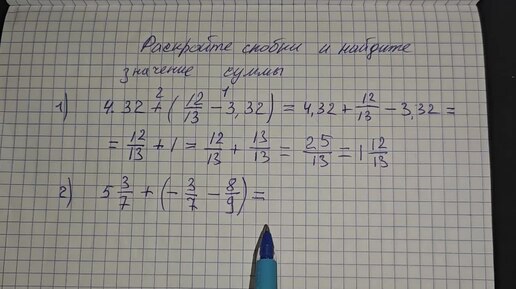 Раскройте скобки и найдите
значение суммы
1) 4.32 + (12/13 - 3,32) = 4,32 + 12/13 - 3,32 =
2 1
= 12/13 + 1 = 12/13 + 13/13 = 25/13 = 1 12/13
2) 5 3/7 + (- 3/7 - 8/9) =